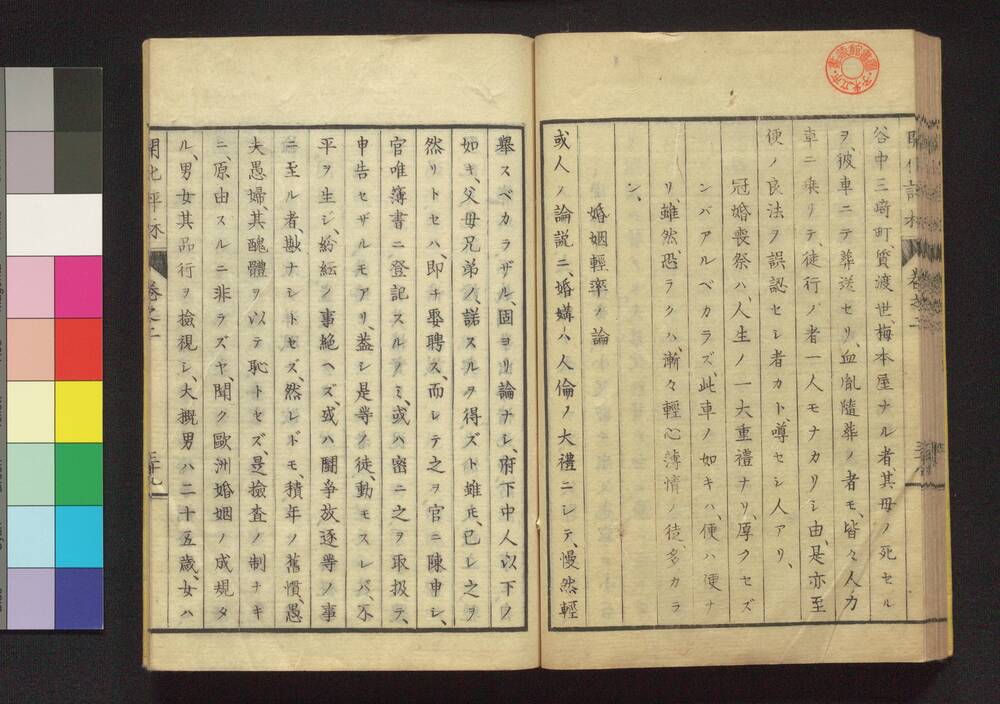 谷中三﨑町、質渡世梅本屋ナル者、其母ノ死セル
ヲ、彼車ニテ葬送セリ、血胤隨葬ノ者モ、皆々人力
車ニ乗リテ、徒行ノ者一人モナカリシ由、是亦至
便ノ良法ヲ誤認セシ者カト噂セシ人アリ、
冠婚喪祭ハ、人生ノ一大重禮ナリ、厚クセズ
ンバアルベカラズ、此車ノ如キハ、便ハ便ナ
リ雖然恐ラクハ、漸々輕心薄情ノ徒多カラ
ン、
婚姻輕率ノ論
或人ノ論説ニ、婚媾ハ人倫ノ大禮ニシテ、慢然輕
擧スベカラザル、固ヨリ論ナシ、府下中人以下ノ
如キ、父母兄弟ノ、諾スルヲ得ズト雖𪜈、已レ之ヲ
然リトセハ、即チ娶聘ス、而レテ之ヲ官ニ陳申シ、
官唯簿書ニ登記スルノミ、或ハ密ニ之ヲ取扱テ、
申告セザルモアリ、蓋シ是等ノ徒、動モスレバ、不
平ヲ生ジ、紛紜ノ事絶ヘズ、或ハ鬪爭放逐等ノ事
ニ至ル者、尠ナシトセズ、然レドモ、積年ノ舊慣、愚
夫愚婦、其醜體ヲ以テ恥トセズ、是撿査ノ制ナキ
ニ、原由スルニ非ラズヤ聞ク歐洲婚姻ノ成規タ
ル、男女其品行ヲ撿視シ、大概男ハ二十五歳、女ハ